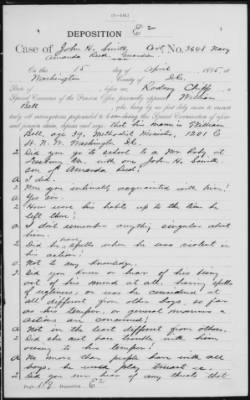 DEPOSITION E2
Case of John H. Smith Cert. No. 3648 Navy
Amanda Reid, Guardian
On this 15 day of April 1895, at
Washington County of D.C.
State of before me, Rodney
Special Examiner of the Pension Office, personally appeared William
Bell who, being by me first duly sworn to answer
truly all interrogatories propounded to him during this Special Examination of aforesaid
pension claim, deposes and says: that his name is William
Bell, age 39, Methodist Minister, 1201 C
St. N. W. Washington D.C.
Q Did you go to school to a Mr. Roby at
with one John H. Smith
son of Amanda Reid?
A I did.
Q Were you intimately acquainted with him?
A Yes sir.
Q How were his habits up to the time he
left there?
A I don't remember anything singular about
him.
Q Did he have spells when he was violent in
his action?
A Not to my knowledge.
Q Did you know or hear of his being
out of his mind at all, having spells
of or was he considered at
all different from other boys, so far
as his temper, or general manners &
actions are concerned?
A Not in the least different from others.
Q Did she not have trouble with him
owing to his temper?
A No more than people have with all
boys. he would play truant &c.
Q Did you ever hear of any threats that